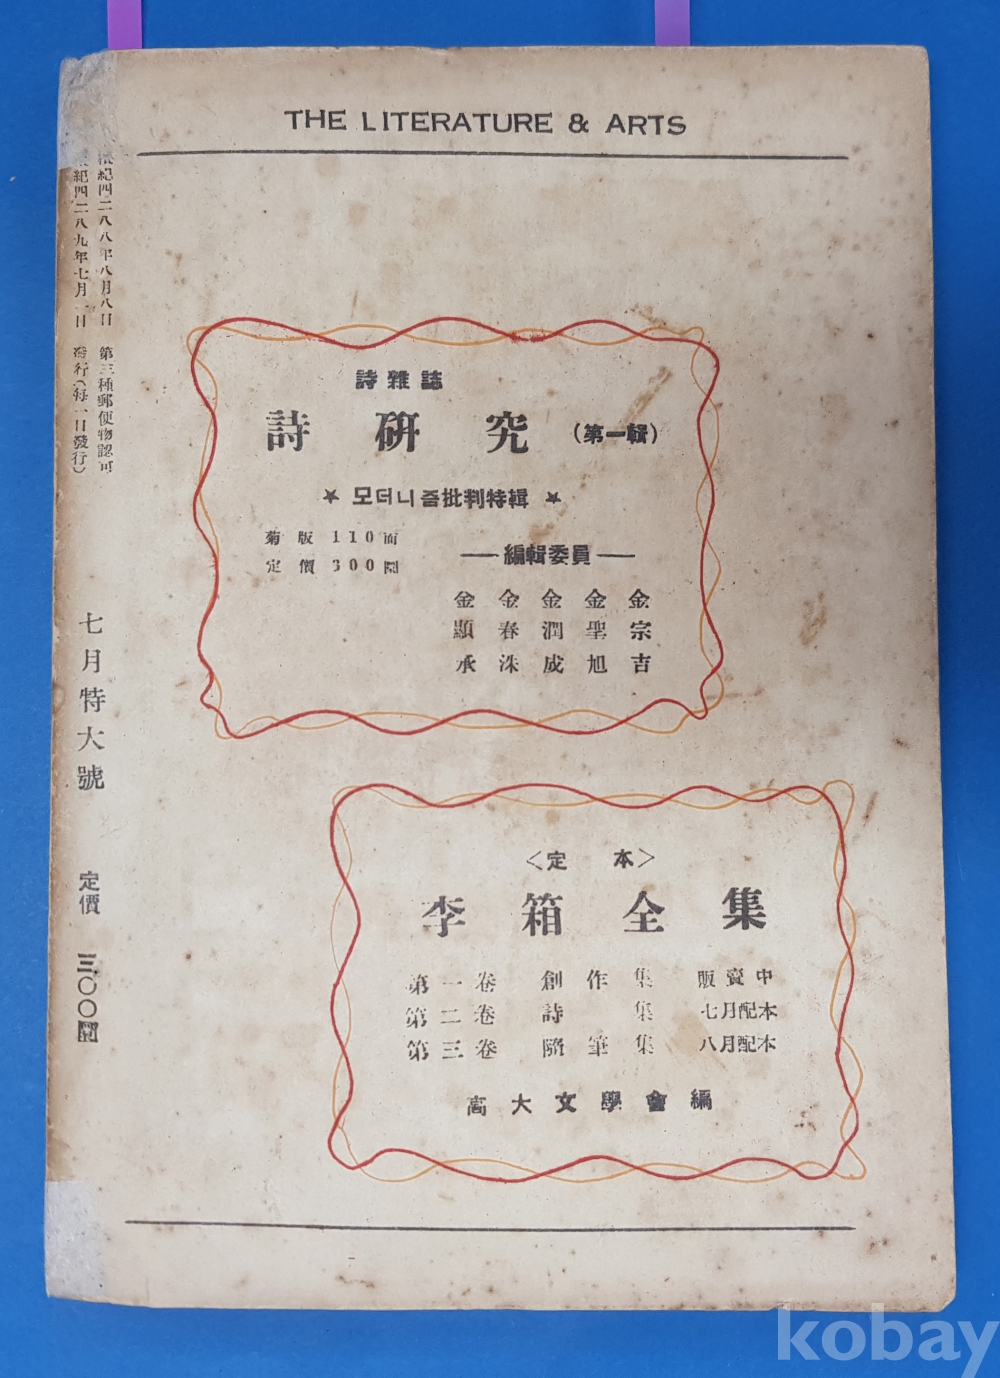 THE LITERATURE & ARTS
檀紀四二八八年八月八日 第三種郵便物認可
檀紀四二八九年七月一日 發行(每一日發行)
七月特大號 定價 三〇〇圜
詩雜誌
詩硏究 (第一輯)
★ 모더니즘批判特輯 ★
菊版110面
定價300圜
編輯委員
金宗吉
金聖旭
金潤成
金春洙
金顯承
<定本>
李箱全集
第一卷 創作集 販賣中
第二卷 詩集 七月配本
第三卷 隨筆集 八月配本
高大文學會編
kobay